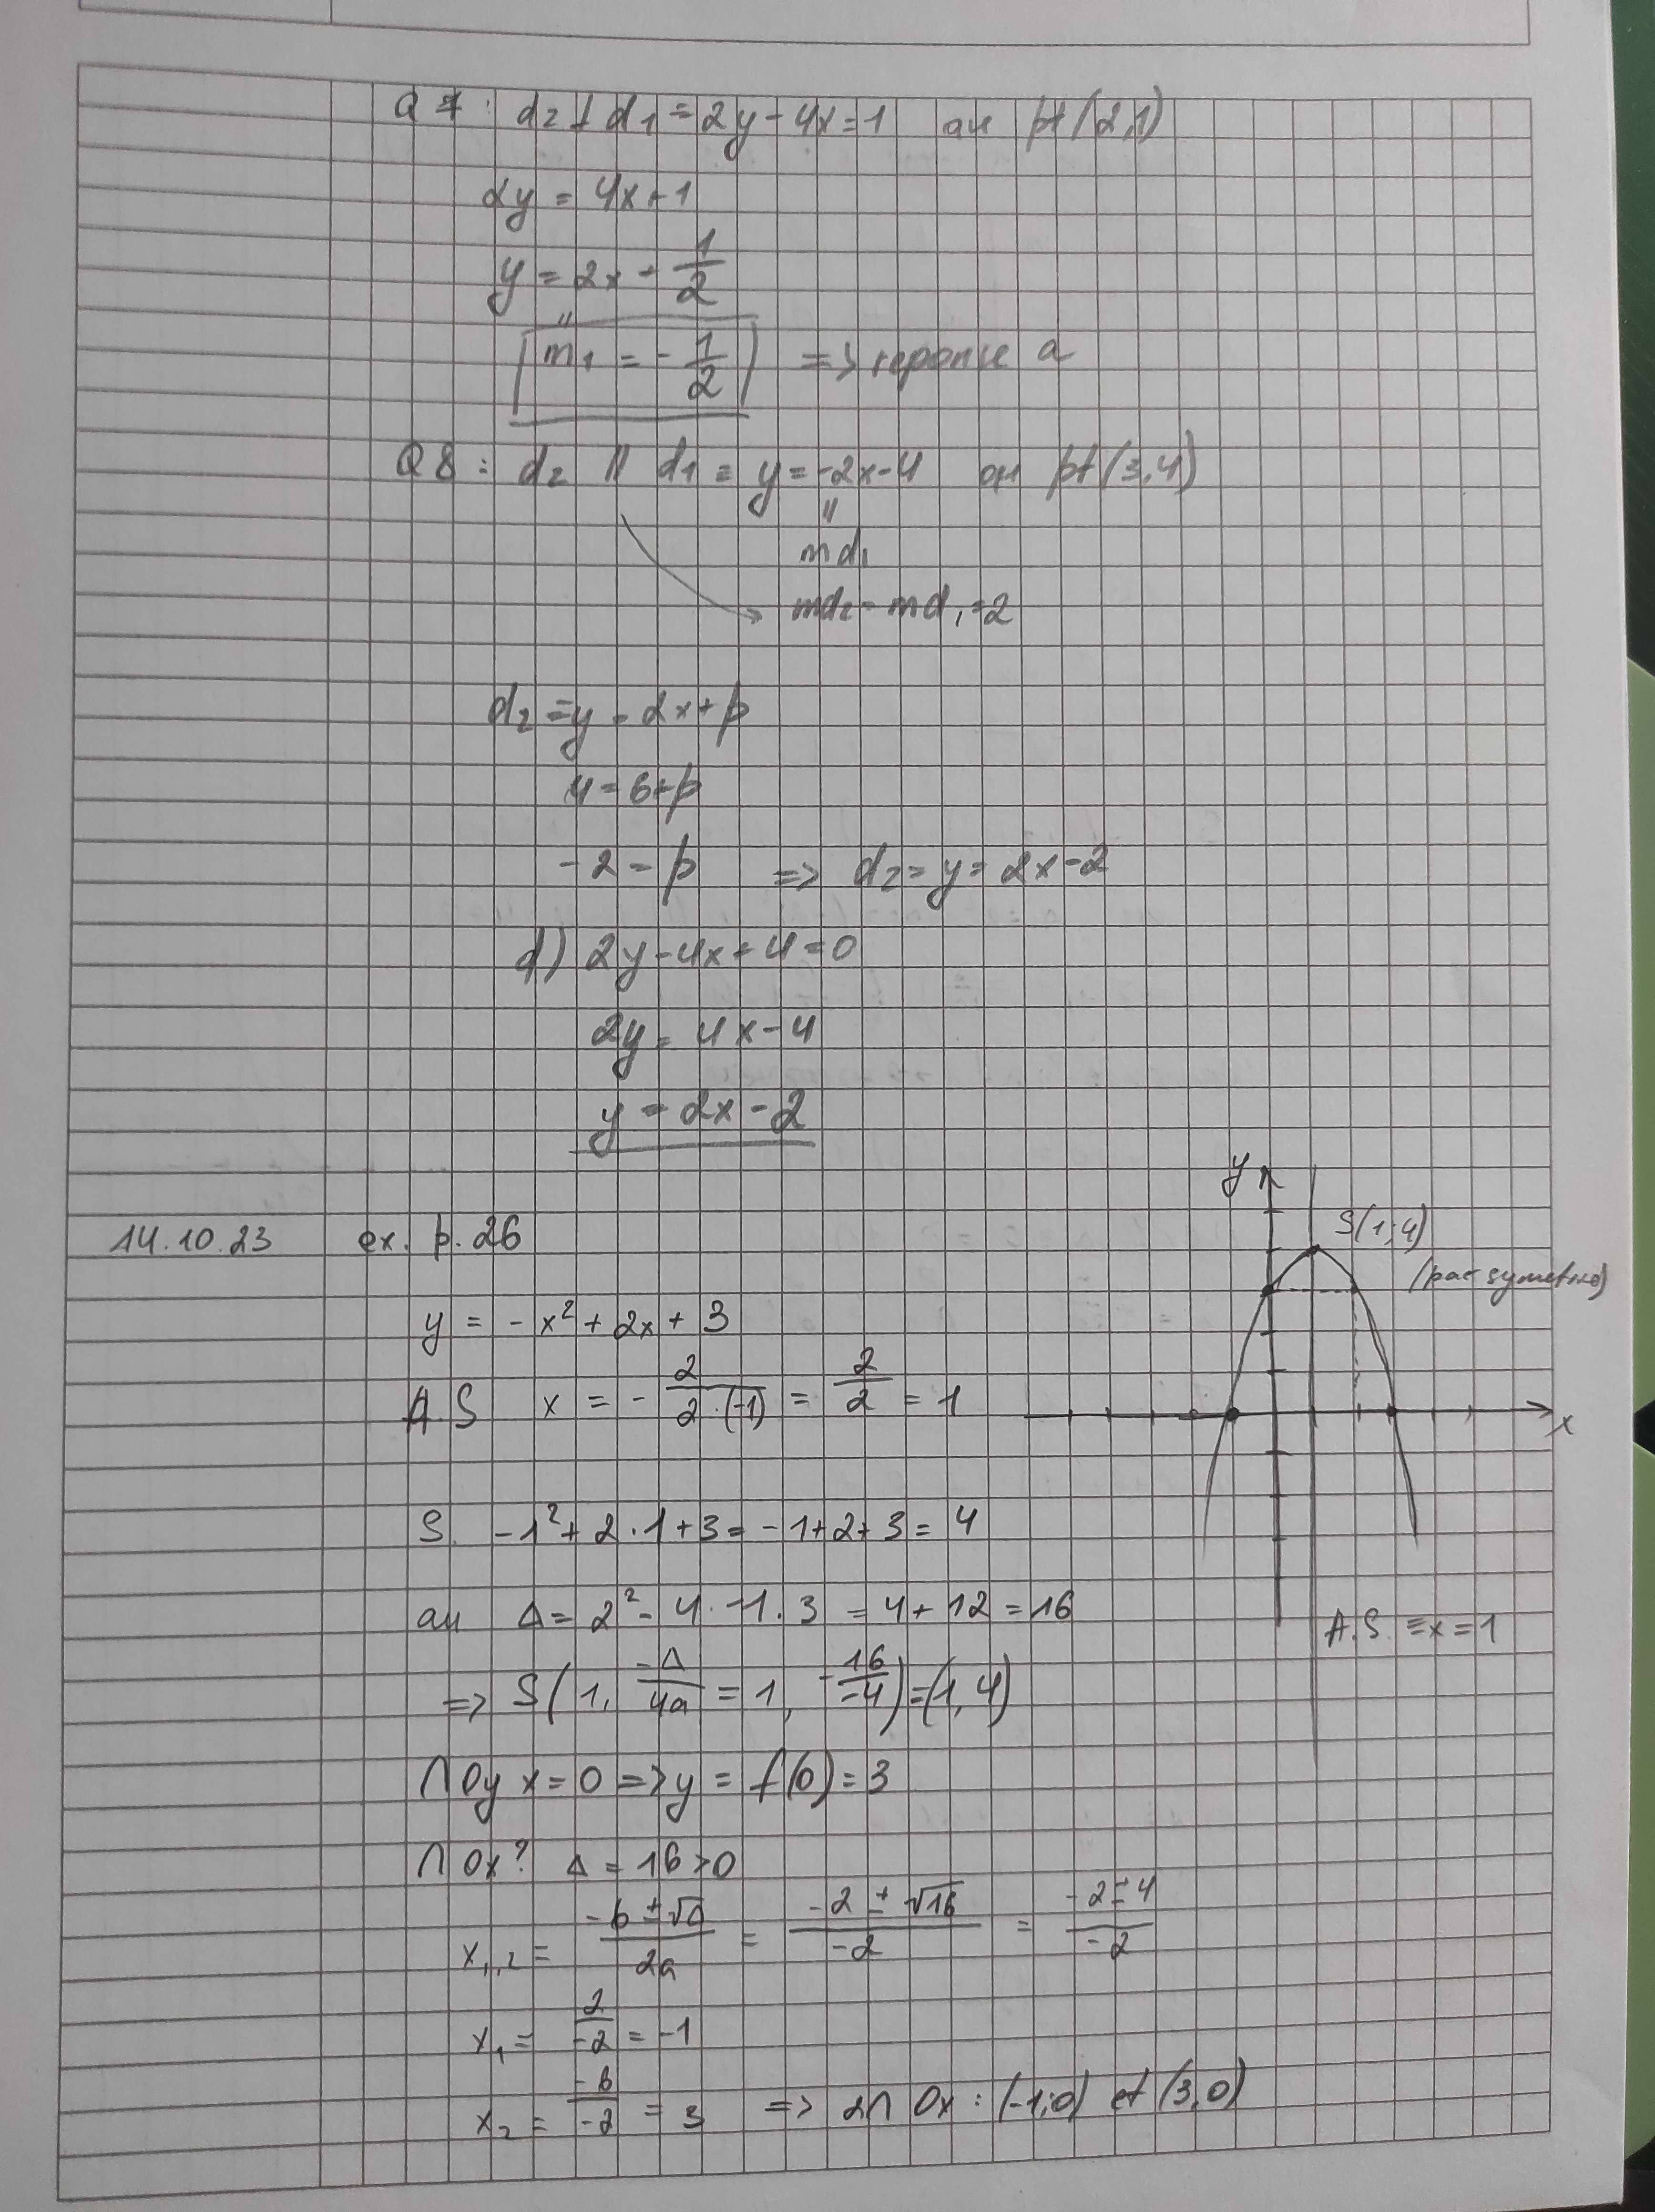 Q 7 : d₂ ⊥ d₁ ≡ 2y - 4x = 1 au pt (2,1)
2y = 4x + 1
y = 2x + 1/2
m₁ = - 1/2 => reponse a
Q 8 : d₂ // d₁ ≡ y = -2x - 4 au pt (3,4)
md₁
md₂ = md₁ = 2
d₂ ≡ y = 2x + p
4 = 6 + p
-2 = p => d₂ = y = 2x - 2
d) 2y - 4x + 4 = 0
2y = 4x - 4
y = 2x - 2
y
S(1,4)
14.10.23 ex. p. 26
(par symetrie)
y = - x² + 2x + 3
A.S x = - 2/(2·(-1)) = 2/2 = 1
x
S. -1² + 2·1 + 3 = -1 + 2 + 3 = 4
au Δ = 2² - 4·-1·3 = 4 + 12 = 16
A.S. ≡ x = 1
=> S(1, -Δ/4a = 1, -16/-4) = (1,4)
∩ Oy x = 0 => y = f(0) = 3
∩ Ox? Δ = 16 > 0
x₁,₂ = (-b ± √Δ)/2a = (-2 ± √16)/-2 = (-2 ± 4)/-2
x₁ = 2/-2 = -1
x₂ = -6/-2 = 3 => 2∩ Ox : (-1;0) et (3,0)